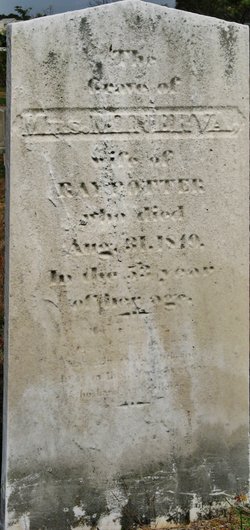 The
Grave of
Mrs. MINERVA,
wife of
RAY POTTER
who died
Aug. 31. 1840.
In the 53 year
of her age.